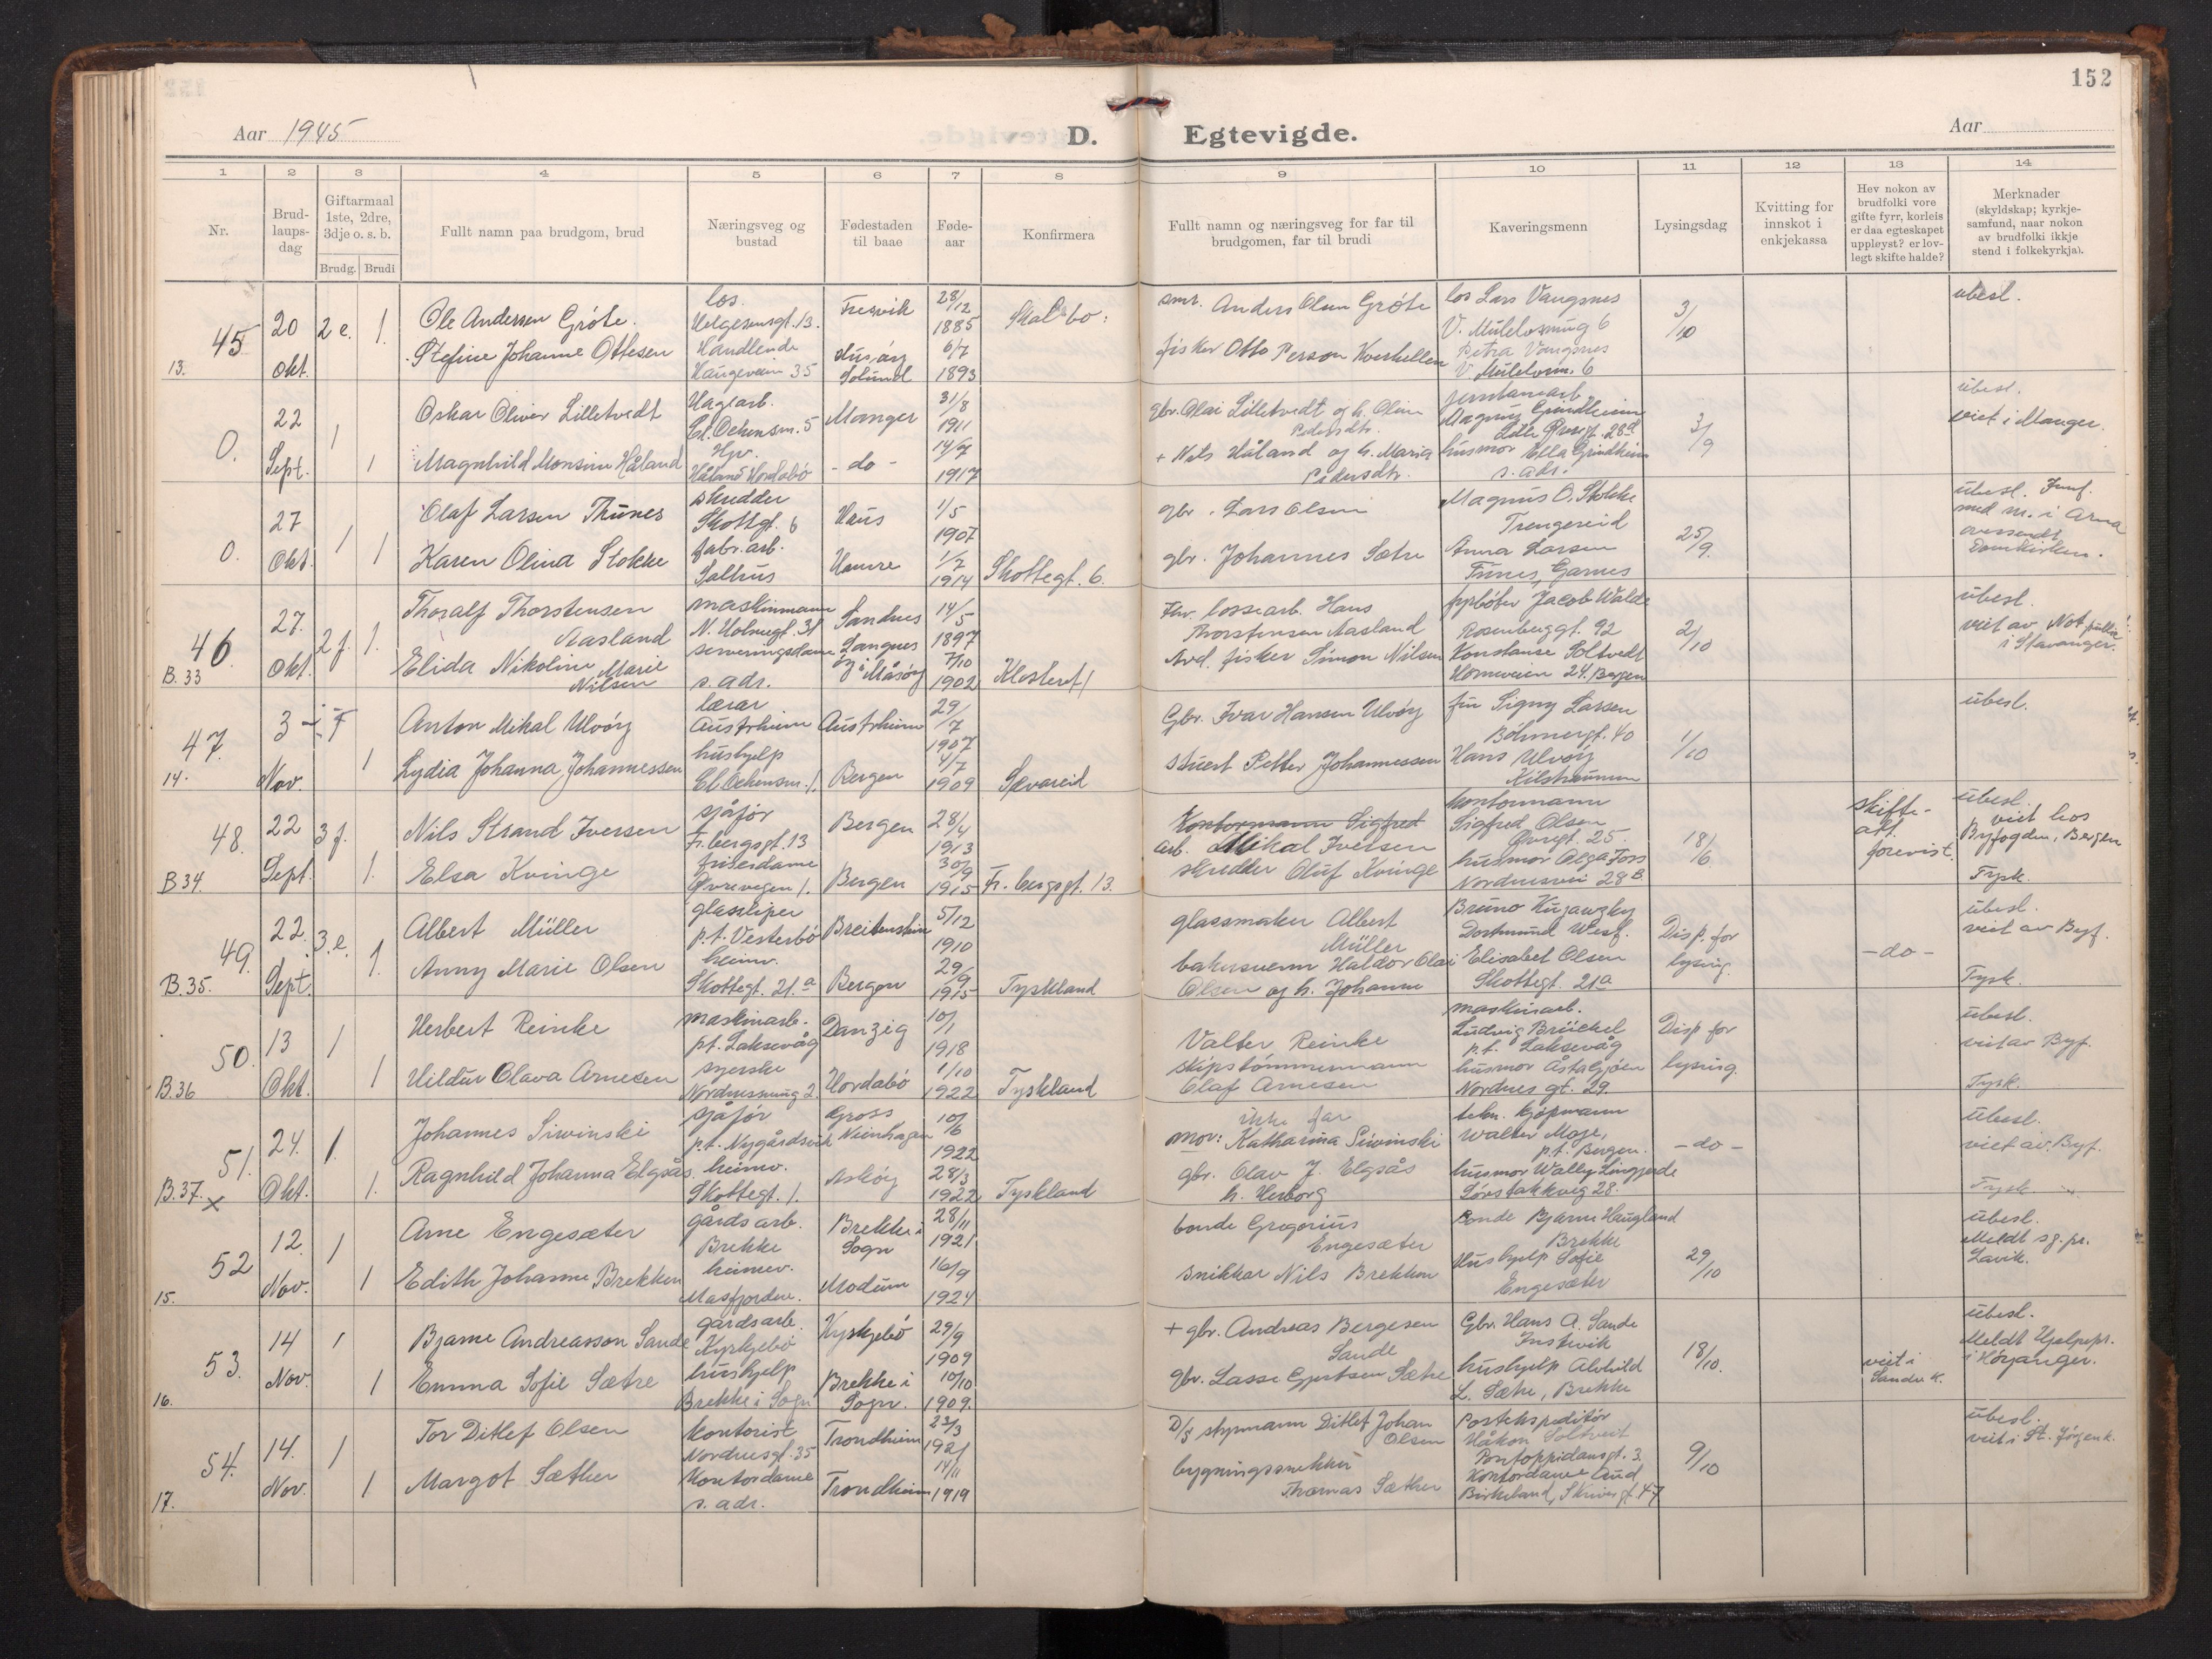 152
Aar 1945
D. Egtevigde.
Aar
1 2 3 4 5 6 7 8 9 10 11 12 13 14
Nr.
Brud-
laups-
dag
Giftarmaal
1ste, 2dre,
3dje o. s. b.
Brudg. Brudi
Fullt namn paa brudgom, brud
Næringsveg og
bustad
Fødestaden
til baae
Føde-
aar
Konfirmera
Fullt namn og næringsveg for far til
brudgomen, far til brudi
Kaveringsmenn
Lysingsdag
Kvitting for
innskot i
enkjekassa
Hev nokon av
brudfolki vore
gifte fyrr, korleis
er daa egteskapet
uppløyst? er lov-
legt skifte halde?
Merknader
(skyldskap; kyrkje-
samfund, naar nokon
av brudfolki ikkje
stend i folkekyrkja).
45
13.
20
Okt.
2 e. 1.
Ole Andersen Gröte.
Stefine Johanne Ottesen
los.
Helgesensgt. 13.
Handlende
Haugeveien 35
Fresvik
Husöy
Solund
28/12
1885
6/7
1893
Skal bo:
smr. Anders Olsen Gröte
fisker Otto Person Kverhellen
los Lars Vangsnes
V. Mülelvsmug 6
Petra Vangsnes
V. Mülelvsm. 6
3/10
ubesl.
0.
22
Sept.
1
1
Oskar Oliver Lilletvedt
Magnhild Monsine Håland
Hagearb.
Cl. Ockensm. 5
Hv.
Håland Hordabö
Manger
- do -
31/8
1911
14/7
1917
gbr. Olai Lilletvedt og h. Oline
Pedersdtr.
+ Nils Håland og h. Maria
Pedersdtr.
Magnus Grindheim
husmor Ella Grindheim
s. adr.
3/9
ubesl.
viet i Manger.
0.
27
Okt.
1
1
Olaf Larsen Thunes
Karen Olina Stokke
skredder
Skottgt. 6
fabr. arb.
Salhus
Haus
Hamre
1/5
1907
1/7
1914
Skottegt. 6.
gbr. Lars Olsen
gbr. Johannes Sætre
Magnus O. Stokke
Trengereid
Anna Larsen
Tunes, Garnes
25/9.
ubesl. Jmf.
med m. i Arna
oversendt
Domkirken.
46
B. 33
27.
Okt.
2 f. 1.
Thoralf Thorstensen
Aasland
Elida Nikoline Marie
Nilsen
maskinmann
N. Holmegt. 31
serveringsdame
s. adr.
Sandnes
Langnes
i Måsöy
14/5
1897
7/10
1902
Klosteret 1
Fhv. lossearb. Hans
Thorstensen Aasland
Avd. fisker Simon Nilsen
Jacob Walde
Rosenberggt. 92
Konstanse Soltvedt
Horneveien 24. Bergen
2/10
ubesl.
viet av Not. publ.
i Stavanger.
47.
14.
3
Nov.
1
Anton Mikal Ulvöy
Lydia Johanna Johannessen
lærar
Austrheim
hushjelp
Cl. Ockensm. 1.
Austrheim
Bergen
29/7
1907
4/7
1909
Sævareid
Gbr. Ivar Hansen Ulvöy
stuert Petter Johannessen
frü Signy Larsen
Böhmergt. 40
Hans Ulvöy
Kilstraumen
1/10
ubesl.
48.
B 34.
22
Sept.
3 f.
1.
Nils Strand Iversen
Elsa Kvinge
sjåfør
Fr. bergsgt. 13
friserdame
Øvrevegen 1.
Bergen
Bergen
28/4
1913
30/9
1915
Fr. bergsgt. 13.
Kontormann Sigfred
arb. Mikal Iversen
skredder Oluf Kvinge
kontormann
Sigfred Olsen
Øvregt. 25
husmor Olga Foss
Nordnesvei 28 B.
18/6
skifte-
att.
forevist.
ubesl.
viet hos
Byfogden, Bergen
Tysk.
49.
B. 35.
22.
Sept.
3. e.
1.
Albert Müller
Anny Marie Olsen
glassliper
p.t. Vesterbö
heimv.
Skottegt. 21. a
Breitenstein
Bergen
5/12
1910
29/9
1915
Tyskland
glassmaker Albert
Müller
bakersvenn Haldor Olai
Olsen og h. Johanne
Bruno
Dortmund Westf.
Elisabet Olsen
Skottegt. 21 a
Disp. for
lysing.
- do -
ubesl.
viet av Byf.
Tysk.
50.
B. 36
13
Okt.
1
1
Herbert Reinke
Hildur Olava Arnesen
maskinarb.
p.t. Laksevåg
syerske
Nordnessmug 2.
Danzig
Hordabö
10/1
1918
1/10
1922
Tyskland
Valter Reinke
skipstömmermann
Olaf Arnesen
maskinarb.
Ludvig Brückel
p.t. Laksevåg
husmor Åsta Gjøen
Nordnes gt. 29.
Disp for
lysing.
ubesl.
viet av Byf.
Tysk.
51.
B. 37. x
24.
Okt.
1.
1.
Johannes Siwinski
Ragnhild Johanna Elgsås
sjåför
p.t. Nygårdsvik
heimv.
Skottegt. 1.
Gross
Neinhagen
Askøy
10/6
1922
28/3
1922
Tyskland
ikke far
mor: Katharina Siwinski
gbr. Olav J. Elgsås
h. Herborg
tekn. kjöpmann
Walter Moje,
p.t. Bergen.
husmor Wally Lingjerde
28.
- do -
ubesl.
viet av Byf.
Tysk
52
15.
12.
Nov.
1
1
Arne Engesæter
Edith Johanne Brekken
gårdsarb.
Brekke
heimv.
Masfjorden.
Brekke i
Sogn
Modum
28/11
1921
16/9
1924
bonde Gregorius
Engesæter
snikkar Nils Brekken
Bonde Bjarne Haugland
Brekke
Hushjelp Sofie
Engesæter
29/10
ubesl.
Meldt sg. pr.
Lavik.
53.
16.
14
Nov.
1
1
Bjarne Andreasson Sande
Emma Sofie Sætre
gårdsarb.
Kyrkjebö
hushjelp
Brekke i Sogn
Kyrkjebö
Brekke i
Sogn.
29/9
1909
10/10
1909.
+ gbr. Andreas Bergesen
Sande
gbr. Lasse Gjertsen Sætre
Gbr. Hans A. Sande
Instevik
hushjelp Alvhild
L. Sætre, Brekke
18/10.
viet i
Sandv. k.
ubesl.
Meldt Hjelpepr.
i Höyanger.
54.
17.
14.
Nov.
1
1
Tor Ditlef Olsen
Margot Sæther
kontorist
Nordnesgt. 35
Kontordame
s. adr.
Trondheim
Trondheim
23/3
1921
14/11
1919
D/S styrmann Ditlef Johan
Olsen
bygningssnekker
Thomas Sæther
Postekspeditör
Håkon Soltveit
Pontoppidansgt. 3.
Kontordame Aud
Birkeland, Skivegt. 47
9/10
ubesl.
viet i St. Jörgen k.